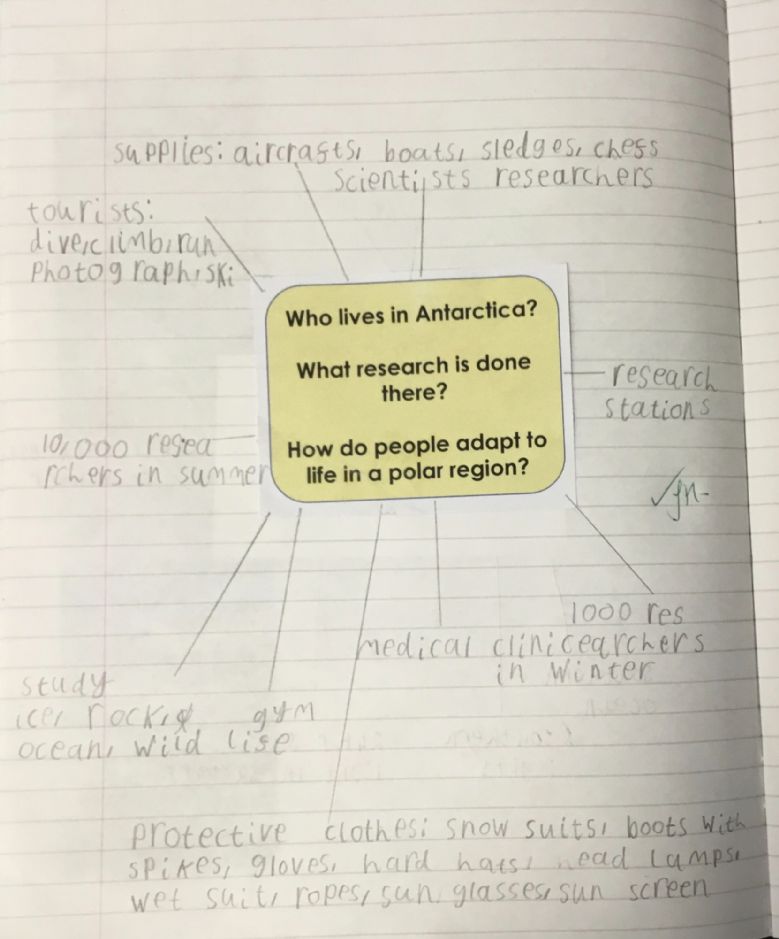 supplies: aircrafts, boats, sledges, chess
scientists researchers
tourists:
dive, climb, run
photograph, ski
Who lives in Antarctica?
What research is done
there?
How do people adapt to
life in a polar region?
research
stations
10,000 resea
rchers in summer
1000 res
earchers
in winter
medical clinic
study
ice, rock,
ocean, wild life
gym
protective clothes: snow suits, boots with
spikes, gloves, hard hats, head lamps,
wet suit, ropes, sun glasses, sun screen